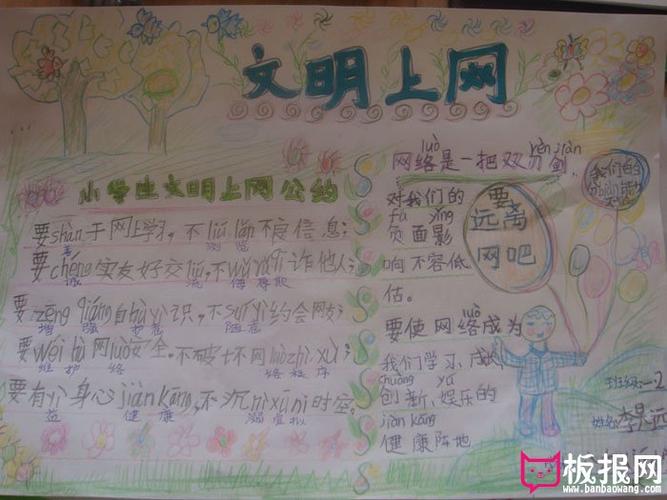 文明上网
小学生文明上网公约
要shàn于网上学习，不liú lǎn不良信息；
善 浏览
要chéng实友好交liú，不wǔ rǔ诈他人；
诚 流
要zēng qiáng自hù yì识，不suí yì约会网友；
增强 护意 随意
要wéi hù网luò安全，不破坏网luò zhì xù；
维护 络 络秩序
要有yì身心jiàn kāng，不沉nì xū nǐ时空。
益 健康 溺虚拟
luò rèn jiàn
网络是一把双刃剑，
对我们的
fù yǐng
负面影
响不容低
估。
luò
要使网络成为
我们学习、成长、
chuàng yú
创新、娱乐的
jiàn kāng
健康阵地
要
远离
网吧
我们的
班级：一、2
姓名：李
板报网
www.banbaowang.com